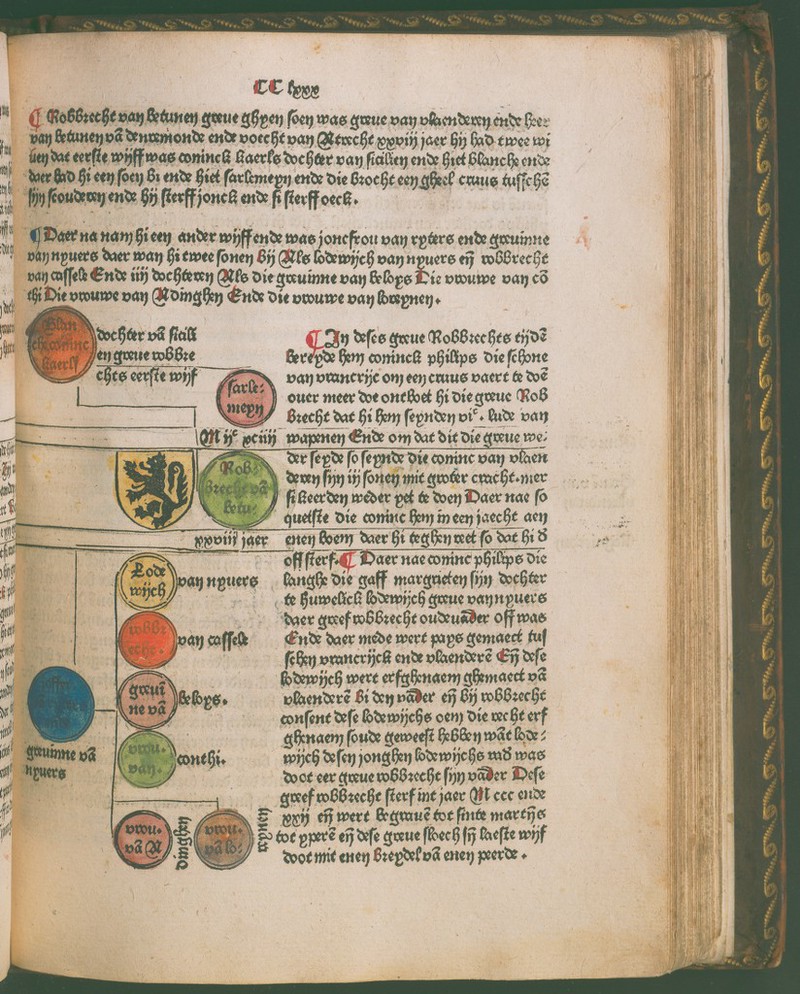 CC lxxx
¶ Robbrecht van betunen greue ghyen soen was greue van vlaenderen ende heer
van betunen vā denremonde ende voecht van Atrecht xxviij jaer hij had twee wi
uen dat eerste wijff was coninck kaerls dochter van sicilien ende hiet blanche ende
daer had hi een soen bi ende hiet sarlemeyn ende die brocht een gheel cruus tusschē
sijn scouderen ende hij sterff jonck ende si sterff oeck.
¶ Daer na nam hi een ander wijff ende was joncfrou van ryters ende greuinne
van nyuers daer wan hi twee sonen bij Als lodewijch van nyuers eñ robbrecht
van cassele Ende iiij dochteren Als die greuinne van beloys Die vrouwe van cō
thi Die vrouwe van Adinghen Ende die vrouwe van loreynen.
Blan
che coninc
kaerls
dochter vā sicili
en greue robbre
chts eerste wijf
sarle-
meyn
M ijᶜ xciiij
Rob-
brecht vā
betu-
xxviij jaer
Lode
wijch
van nyuers
robbr
echt.
van cassele
greui
ne vā
beloys.
vrou-
van.
conthi.
greuinne vā
nyuers
vrou-
vā A
dinghen
vrou-
vā lo-
reynen
¶ In deses greue Robbrechts tijdē
bereyde hem coninck philips die schone
van vrancrijc om een cruus vaert te doē
ouer meer doe ontboet hi die greue Rob
brecht dat hi hem seynden viᶜ. lude van
wapenen Ende om dat dit die greue we-
der seyde so seynde die coninc van vlaen
deren sijn iij sonen mit groter cracht. mer
si keerden weder yet te doen Daer nae so
quetste die coninc hem in een jaecht aen
enen boem daer hi teghen reet so dat hi d
off sterf. ¶ Daer nae coninc philips die
langhe die gaff margrieten sijn dochter
te huwelick lodewijch greue van nyuers
daer greef robbrecht oudeuader off was
Ende daer mede wert pays gemaect tus
schen vrancrijck ende vlaenderē Eñ dese
lodewijch wert erfghenaem ghemaect vā
vlaenderē bi den vader eñ bij robbrecht
consent dese lodewijchs oem die recht erf
ghenaem soude geweest hebben wāt lode-
wijch desen jonghen lodewijchs vad was
doot eer greue robbrecht sijn vader Dese
greef robbrecht sterf int jaer M ccc ende
xxij eñ wert begrauē tot sinte martijs
tot yperē eñ dese greue sloech sij laeste wijf
doot mit enen breydel vā enen peerde.